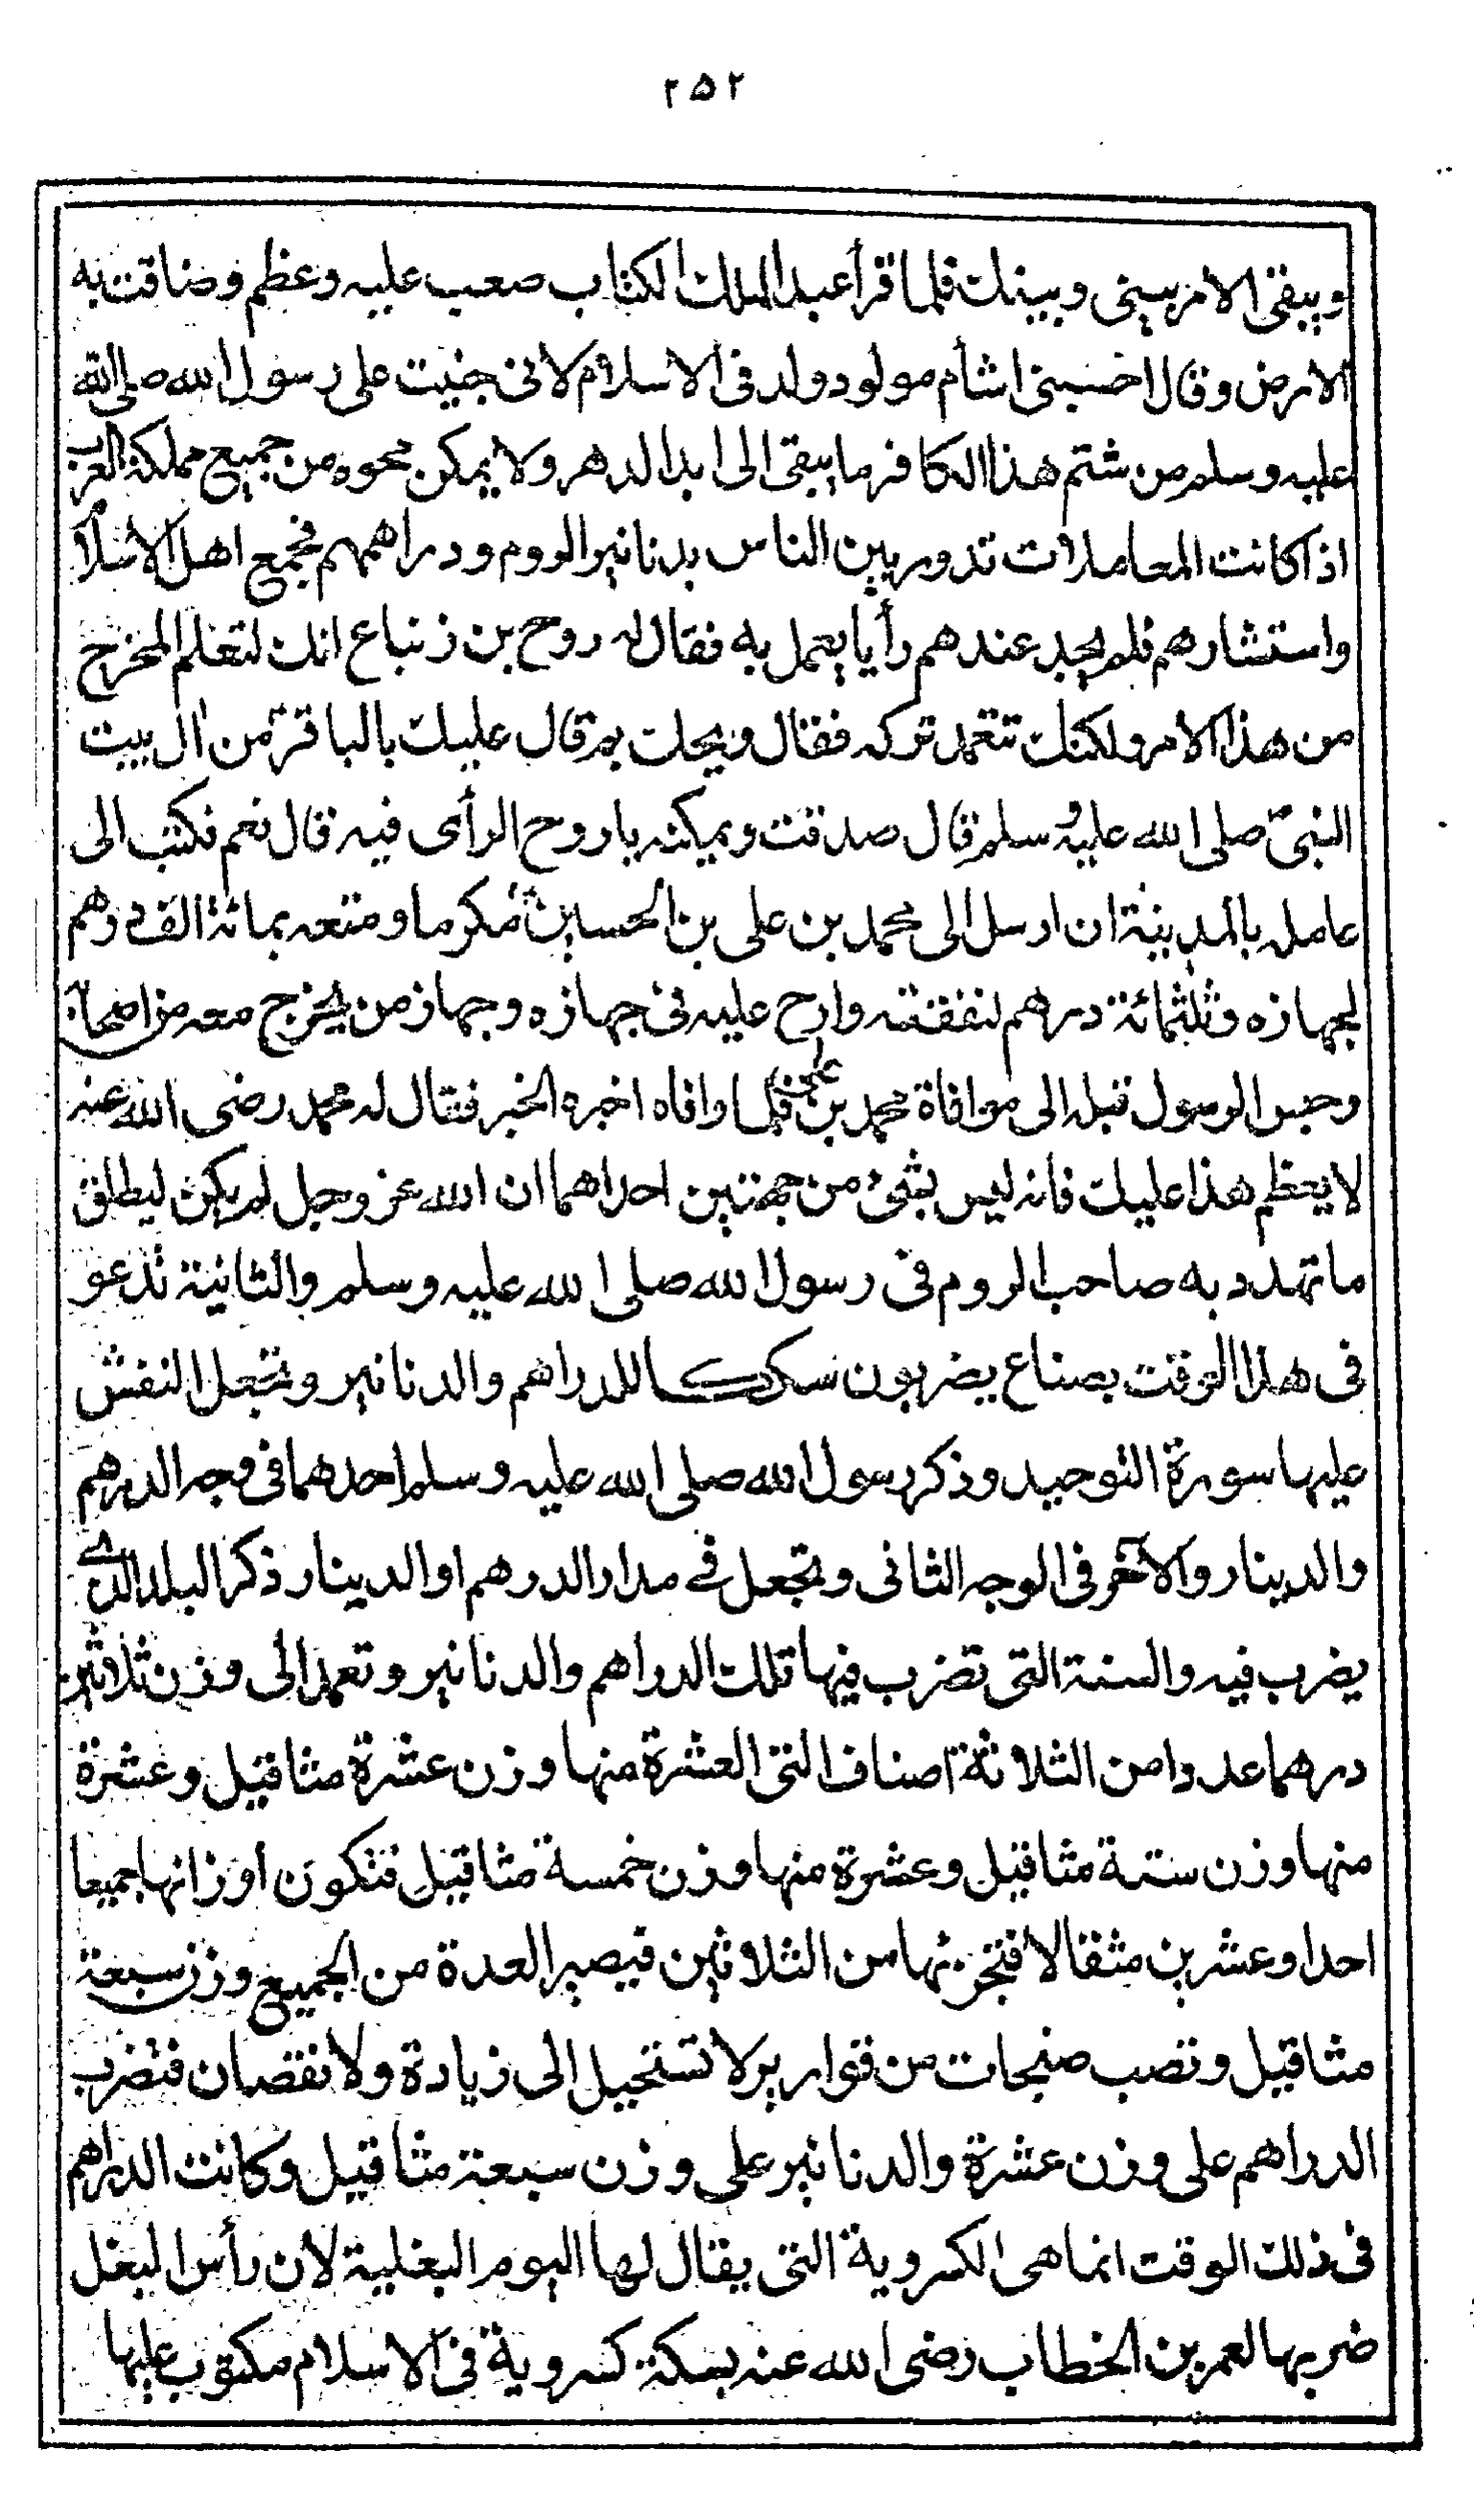 ٢٥٢
ويبقى الامر بيني وبينك فلما قرأ عبد الملك الكتاب صعب عليه وعظم وضاقت به
الارض وقال احسبني اشأم مولود ولد في الاسلام لاني جنيت على رسول الله صلى الله
عليه وسلم من شتم هذا الكافر ما يبقى الى ابد الدهر ولا يمكن محوه من جميع مملكة العرب
اذ كانت المعاملات تدور بين الناس بدنانير الروم ودراهمهم فجمع اهل الاسلام
واستشارهم فلم يجد عندهم رأيا يعمل به فقال له روح بن زنباع انك لتعلم المخرج
من هذا الامر ولكنك تتعمد تركه فقال ويحك بم قال عليك بالباقر من ال بيت
النبي صلى الله عليه وسلم قال صدقت ويمكنه ياروح الرأى فيه قال نعم فكتب الى
عامله بالمدينة ان ارسل الى محمد بن على بن الحسين مكرما ومتعه بمائة الف درهم
لجهازه وثلثمائة درهم لنفقته وارح عليه في جهازه وجهاز من يخرج معه من اصحابه
وحبس الرسول قبله الى موافاة محمد بن على فلما وافاه اخبره الخبر فقال له محمد رضى الله عنه
لا يعظم هذا عليك فانه ليس بشئ من جهتين احداهما ان الله عز وجل لم يكن ليطلق
ما تهدد به صاحب الروم في رسول الله صلى الله عليه وسلم والثانية تدعو
في هذا الوقت بصناع يضربون سككا للدراهم والدنانير وتجعل النقش
عليها سورة التوحيد وذكر رسول الله صلى الله عليه وسلم احدهما في وجه الدرهم
والدينار والآخر في الوجه الثاني وتجعل في مدار الدرهم او الدينار ذكر البلد الذي
يضرب فيه والسنة التي تضرب فيها تلك الدراهم والدنانير وتعمد الى وزن ثلاثين
درهما عددا من الثلاثة اصناف التي العشرة منها وزن عشرة مثاقيل وعشرة
منها وزن ستة مثاقيل وعشرة منها وزن خمسة مثاقيل فتكون اوزانها جميعا
احدا وعشرين مثقالا فتجزئها من الثلاثين فيصير العدة من الجميع وزن سبعة
مثاقيل وتصب صنجات من قوارير لا تستحيل الى زيادة ولا نقصان فتضرب
الدراهم على وزن عشرة والدنانير على وزن سبعة مثاقيل وكانت الدراهم
في ذلك الوقت انما هى الكسروية التي يقال لها اليوم البغلية لان رأس البغل
ضربها لعمر بن الخطاب رضى الله عنه بسكة كسروية في الاسلام مكتوب عليها